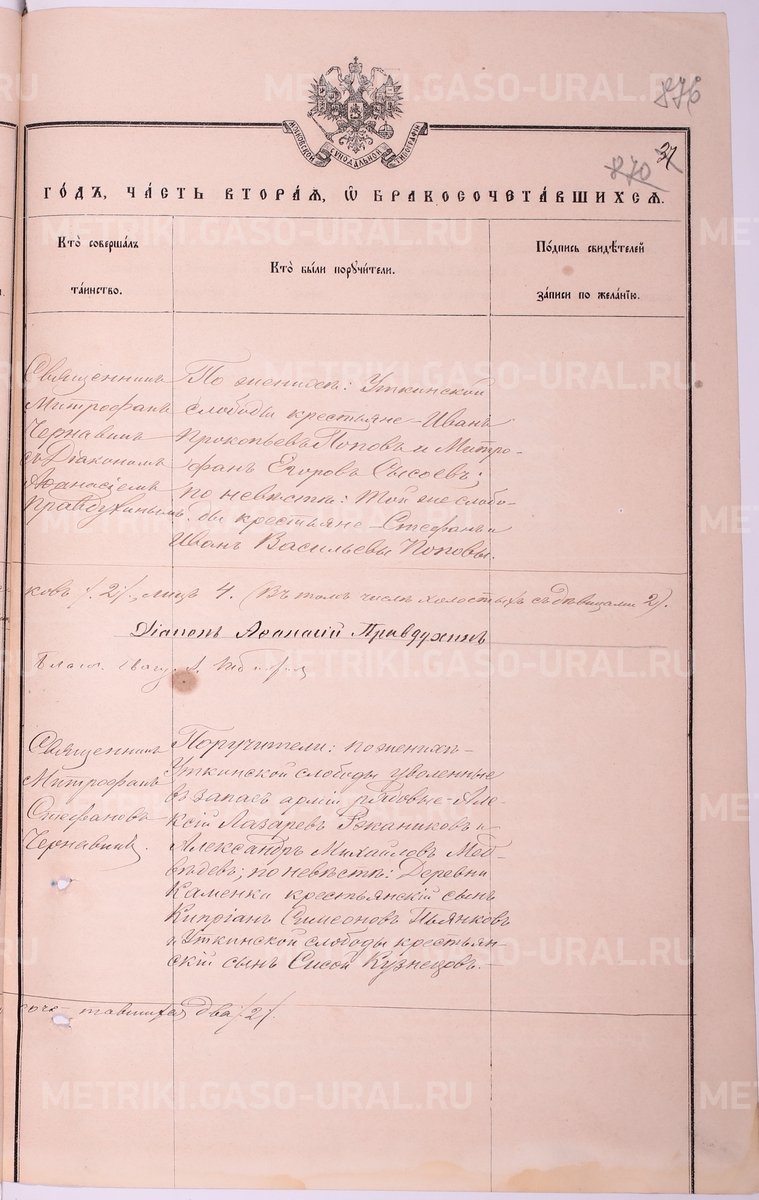 876
870 37
МОСКОВСКОЙ СѴНОДАЛЬНОЙ ТИПОГРАФІИ
ГО́ДЪ, ЧА́СТЬ ВТОРА́Ѧ, Ѽ БРАКОСОЧЕТА́ВШИХСѦ.
Кто̀ соверша́лъ
та́инство.
Кто̀ бы́ли порꙋчи́тели.
По́дпись свидѣ́телей
за́писи по жела́нїю.
Священникъ
Митрофанъ
Чернавинъ
съ Діакономъ
Аѳанасіемъ
Правдухинымъ.
По женихѣ: Уткинской
слободы крестьяне - Иванъ
Прокопьевъ Поповъ и Митро-
фанъ Егоровъ Сысоевъ;
по невѣстѣ: той же слобо-
ды крестьяне - Стефанъ и
Иванъ Васильевы Поповы.
ковъ /.2/., лицъ 4. (Въ томъ числѣ холостыхъ съ дѣвицами 2).
Діаконъ Аѳанасій Правдухинъ
Священникъ
Митрофанъ
Стефановъ
Чернавинъ.
Поручители: по женихѣ -
Уткинской слободы уволенные
въ запасъ арміи рядовые - Але-
ксій Лазаревъ и
Александръ Михайловъ Мед-
вѣдевъ; по невѣстѣ: Деревни
Каменки крестьянскій сынъ
Кипріанъ Симеоновъ Пьянковъ
и Уткинской слободы крестьян-
скій сынъ Сысой Кузнецовъ. -
соче - тавшихся два /.2/.
METRIKI.GASO-URAL.RU